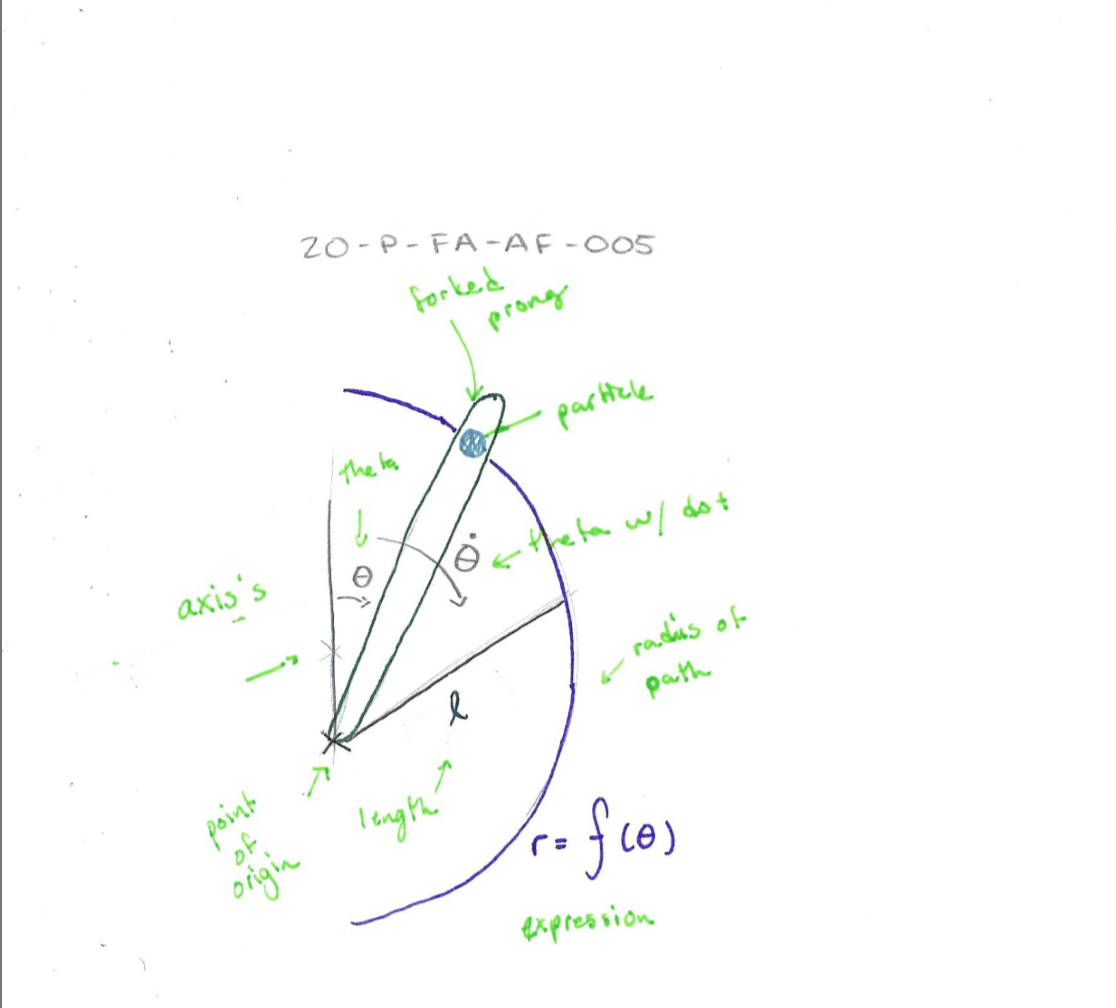 20-P-FA-AF-005
forked
prong
particle
theta
theta w/ dot
θ
θ̇
axis's
radius of
path
l
length
point
of
origin
r = f(θ)
expression